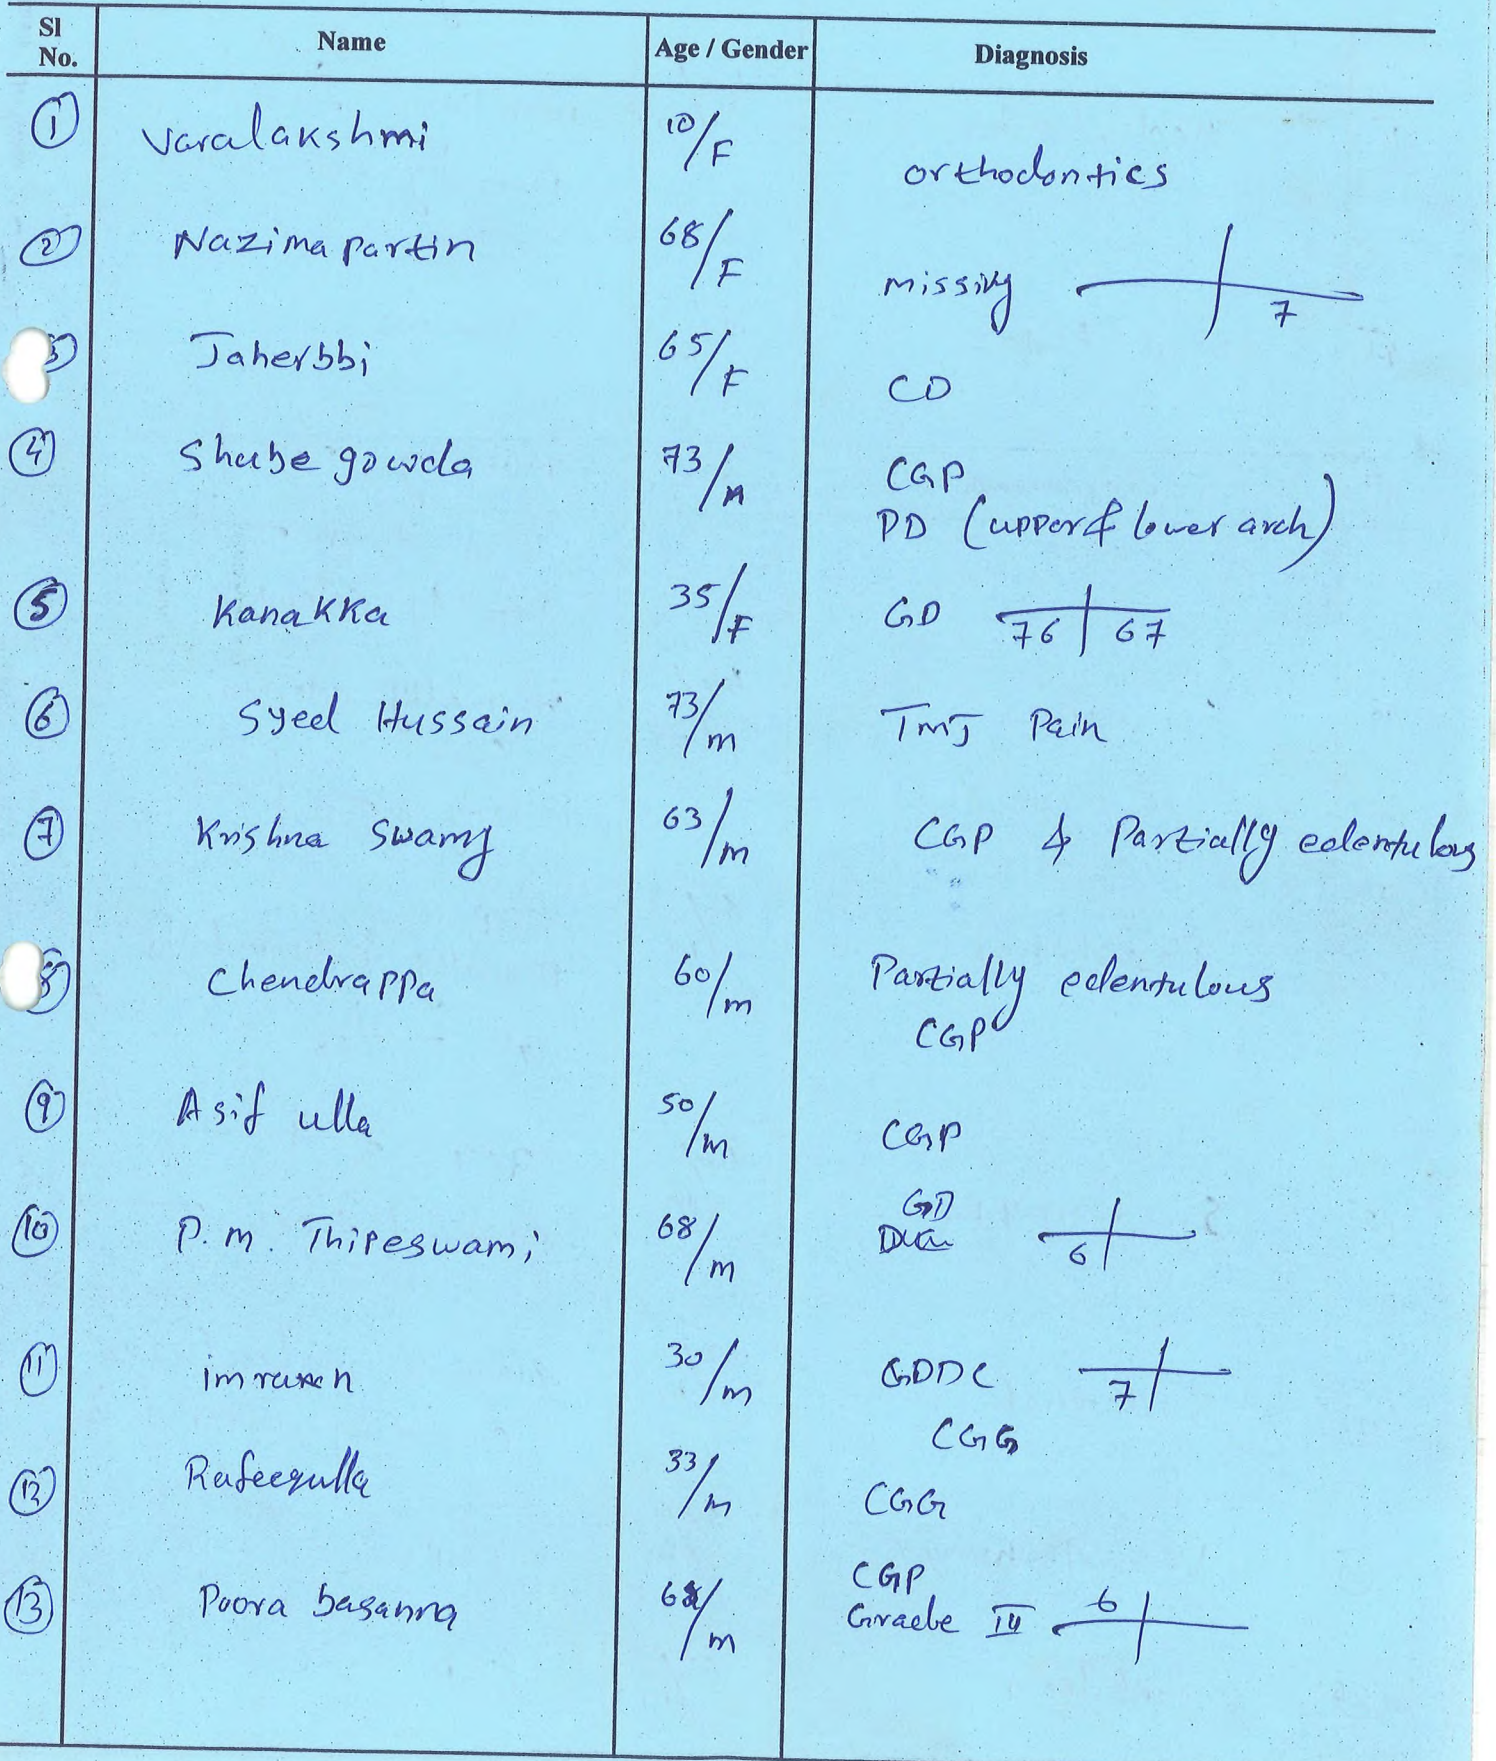 Sl No. Name Age / Gender Diagnosis
1 Varalakshmi 10/F orthodontics
2 Nazima Partin 68/F missing 7
3 Jaherbbi 65/F CD
4 Shube gowda 73/M CGP
PD (upper & lower arch)
5 Kanakka 35/F GD 76 67
6 Syed Hussain 73/m TMJ Pain
7 Krishna Swamy 63/m CGP & Partially edentulous
8 Chendrappa 60/m Partially edentulous
CGP
9 Asif ulla 50/m CGP
GD
10 P.m. Thipeswami 68/m 6
11 imraan 30/m GDDC 7
CGG
12 Rafeequlla 33/m CGG
CGP
13 Poora basanna /m Graede 6